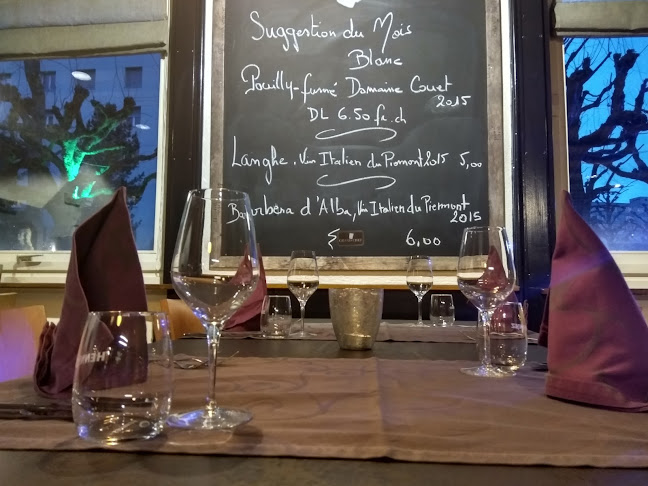 Suggestion du Mois
Blanc
Pouilly-fumé Domaine Couet
2015
DL 6.50 fr.ch
Langhe. Vin Italien du Piemont 2015 5,00
Barbera d'Alba, Vin Italien du Piermont
2015
6,00